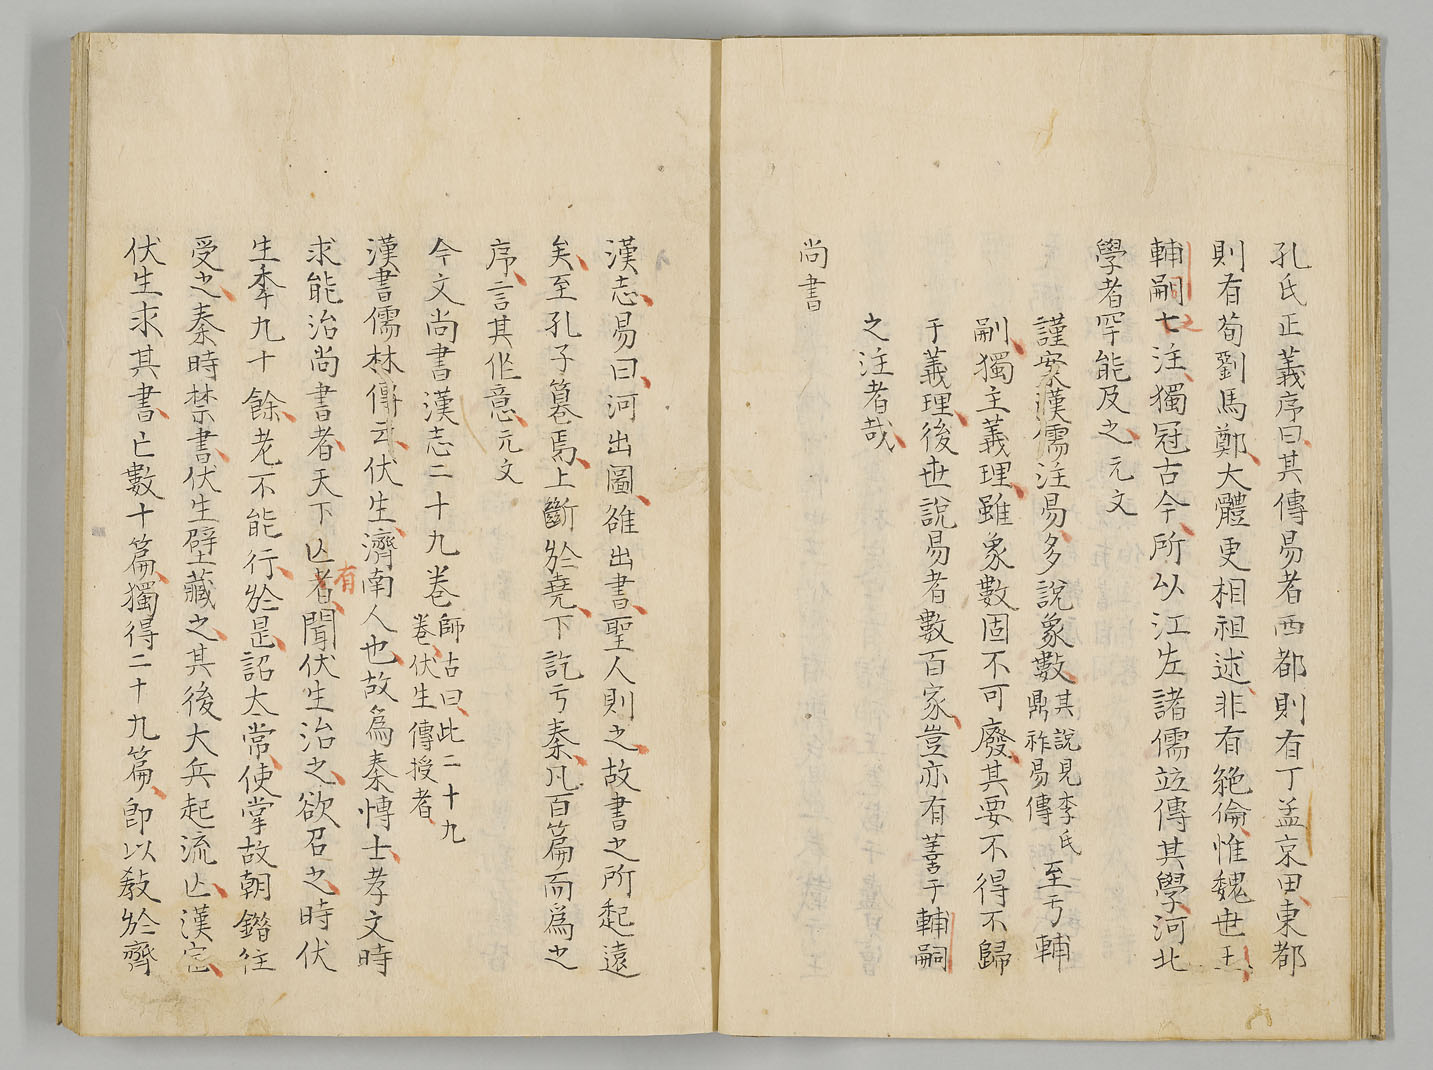 孔氏正義序曰其傳易者西都則有丁孟京田東都
則有荀劉馬鄭大體更相祖述非有絶倫惟魏世王
輔嗣之注獨冠古今所以江左諸儒竝傳其學河北
學者罕能及之元文
謹案漢儒注易多說象數其說見李氏鼎祚易傳至亏輔
嗣獨主義理雖象數固不可廢其要不得不歸
于義理後世說易者數百家豈亦有譱于輔嗣
之注者哉
尚書
漢志易曰河出圖雒出書聖人則之故書之所起遠
矣至孔子篹焉上斷於堯下訖亏秦凡百篇而爲之
序言其作意元文
今文尚書漢志二十九卷師古曰此二十九卷伏生傳授者
漢書儒林傳云伏生濟南人也故爲秦博士孝文時
求能治尚書者天下亾有者聞伏生治之欲召之時伏
生年九十餘老不能行於是詔太常使掌故朝錯往
受之秦時禁書伏生壁藏之其後大兵起流亾漢定
伏生求其書亡數十篇獨得二十九篇即以敎於齊